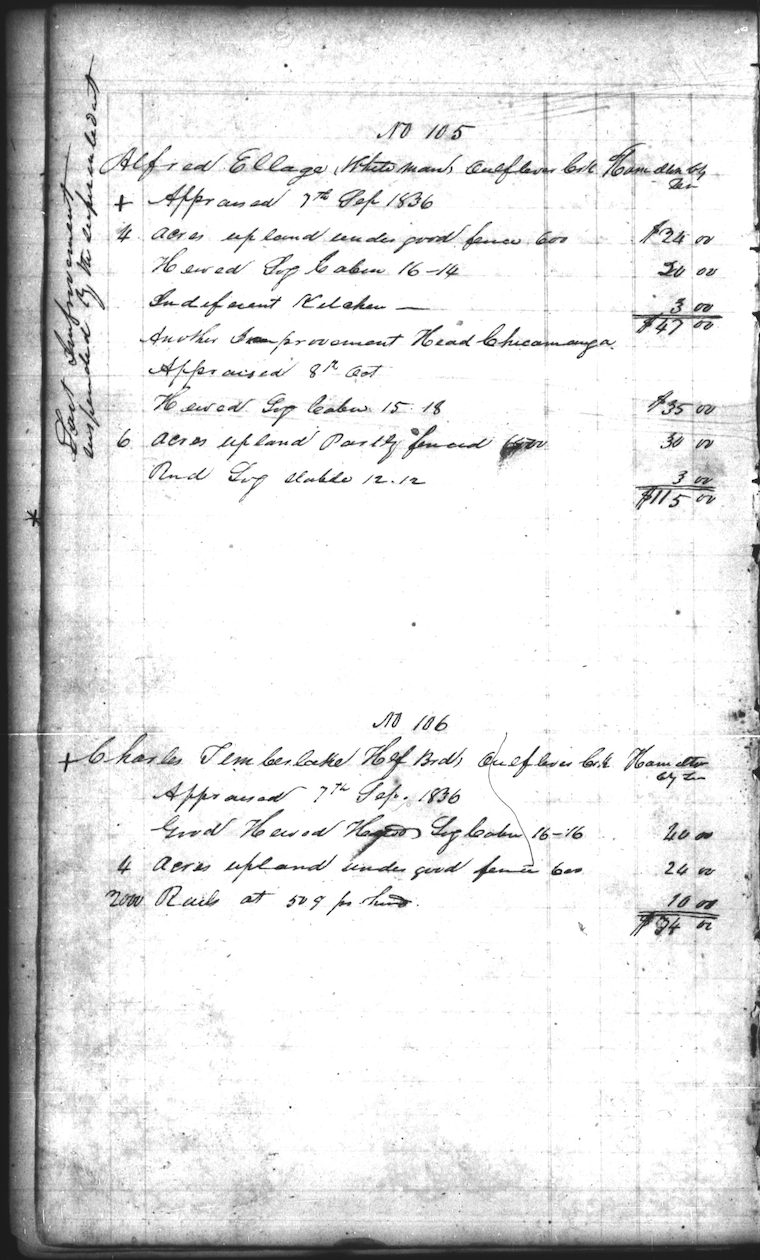 No 105
Alfred Ellage, White man, Ouelflever Crk Hamilton Cty
Ten
+ Appraised 7th Sep 1836
4 acres upland under good fence 600 $24 00
Hewed Log Cabin 16-14 20 00
Indeferent Kitchen — 3 00
$47 00
Another Improvement Head Chicamauga.
Appraised 8th Oct
Hewed Log Cabin 15-18 $35 00
6 acres upland Partly fenced 30 00
Rnd Log stable 12.12 3 00
$115 00
Improvement
suspended by the superintendant
*
No 106
+ Charles Timberlake Hlf Brd, Ouelflever Crk Hamilton
Cty Ten
Appraised 7th Sep. 1836
Good Hewed Log Cabin 16-16 40 00
4 acres upland under good fence 600 24 00
2000 Rails at 50 pr hund. 10 00
$74 00